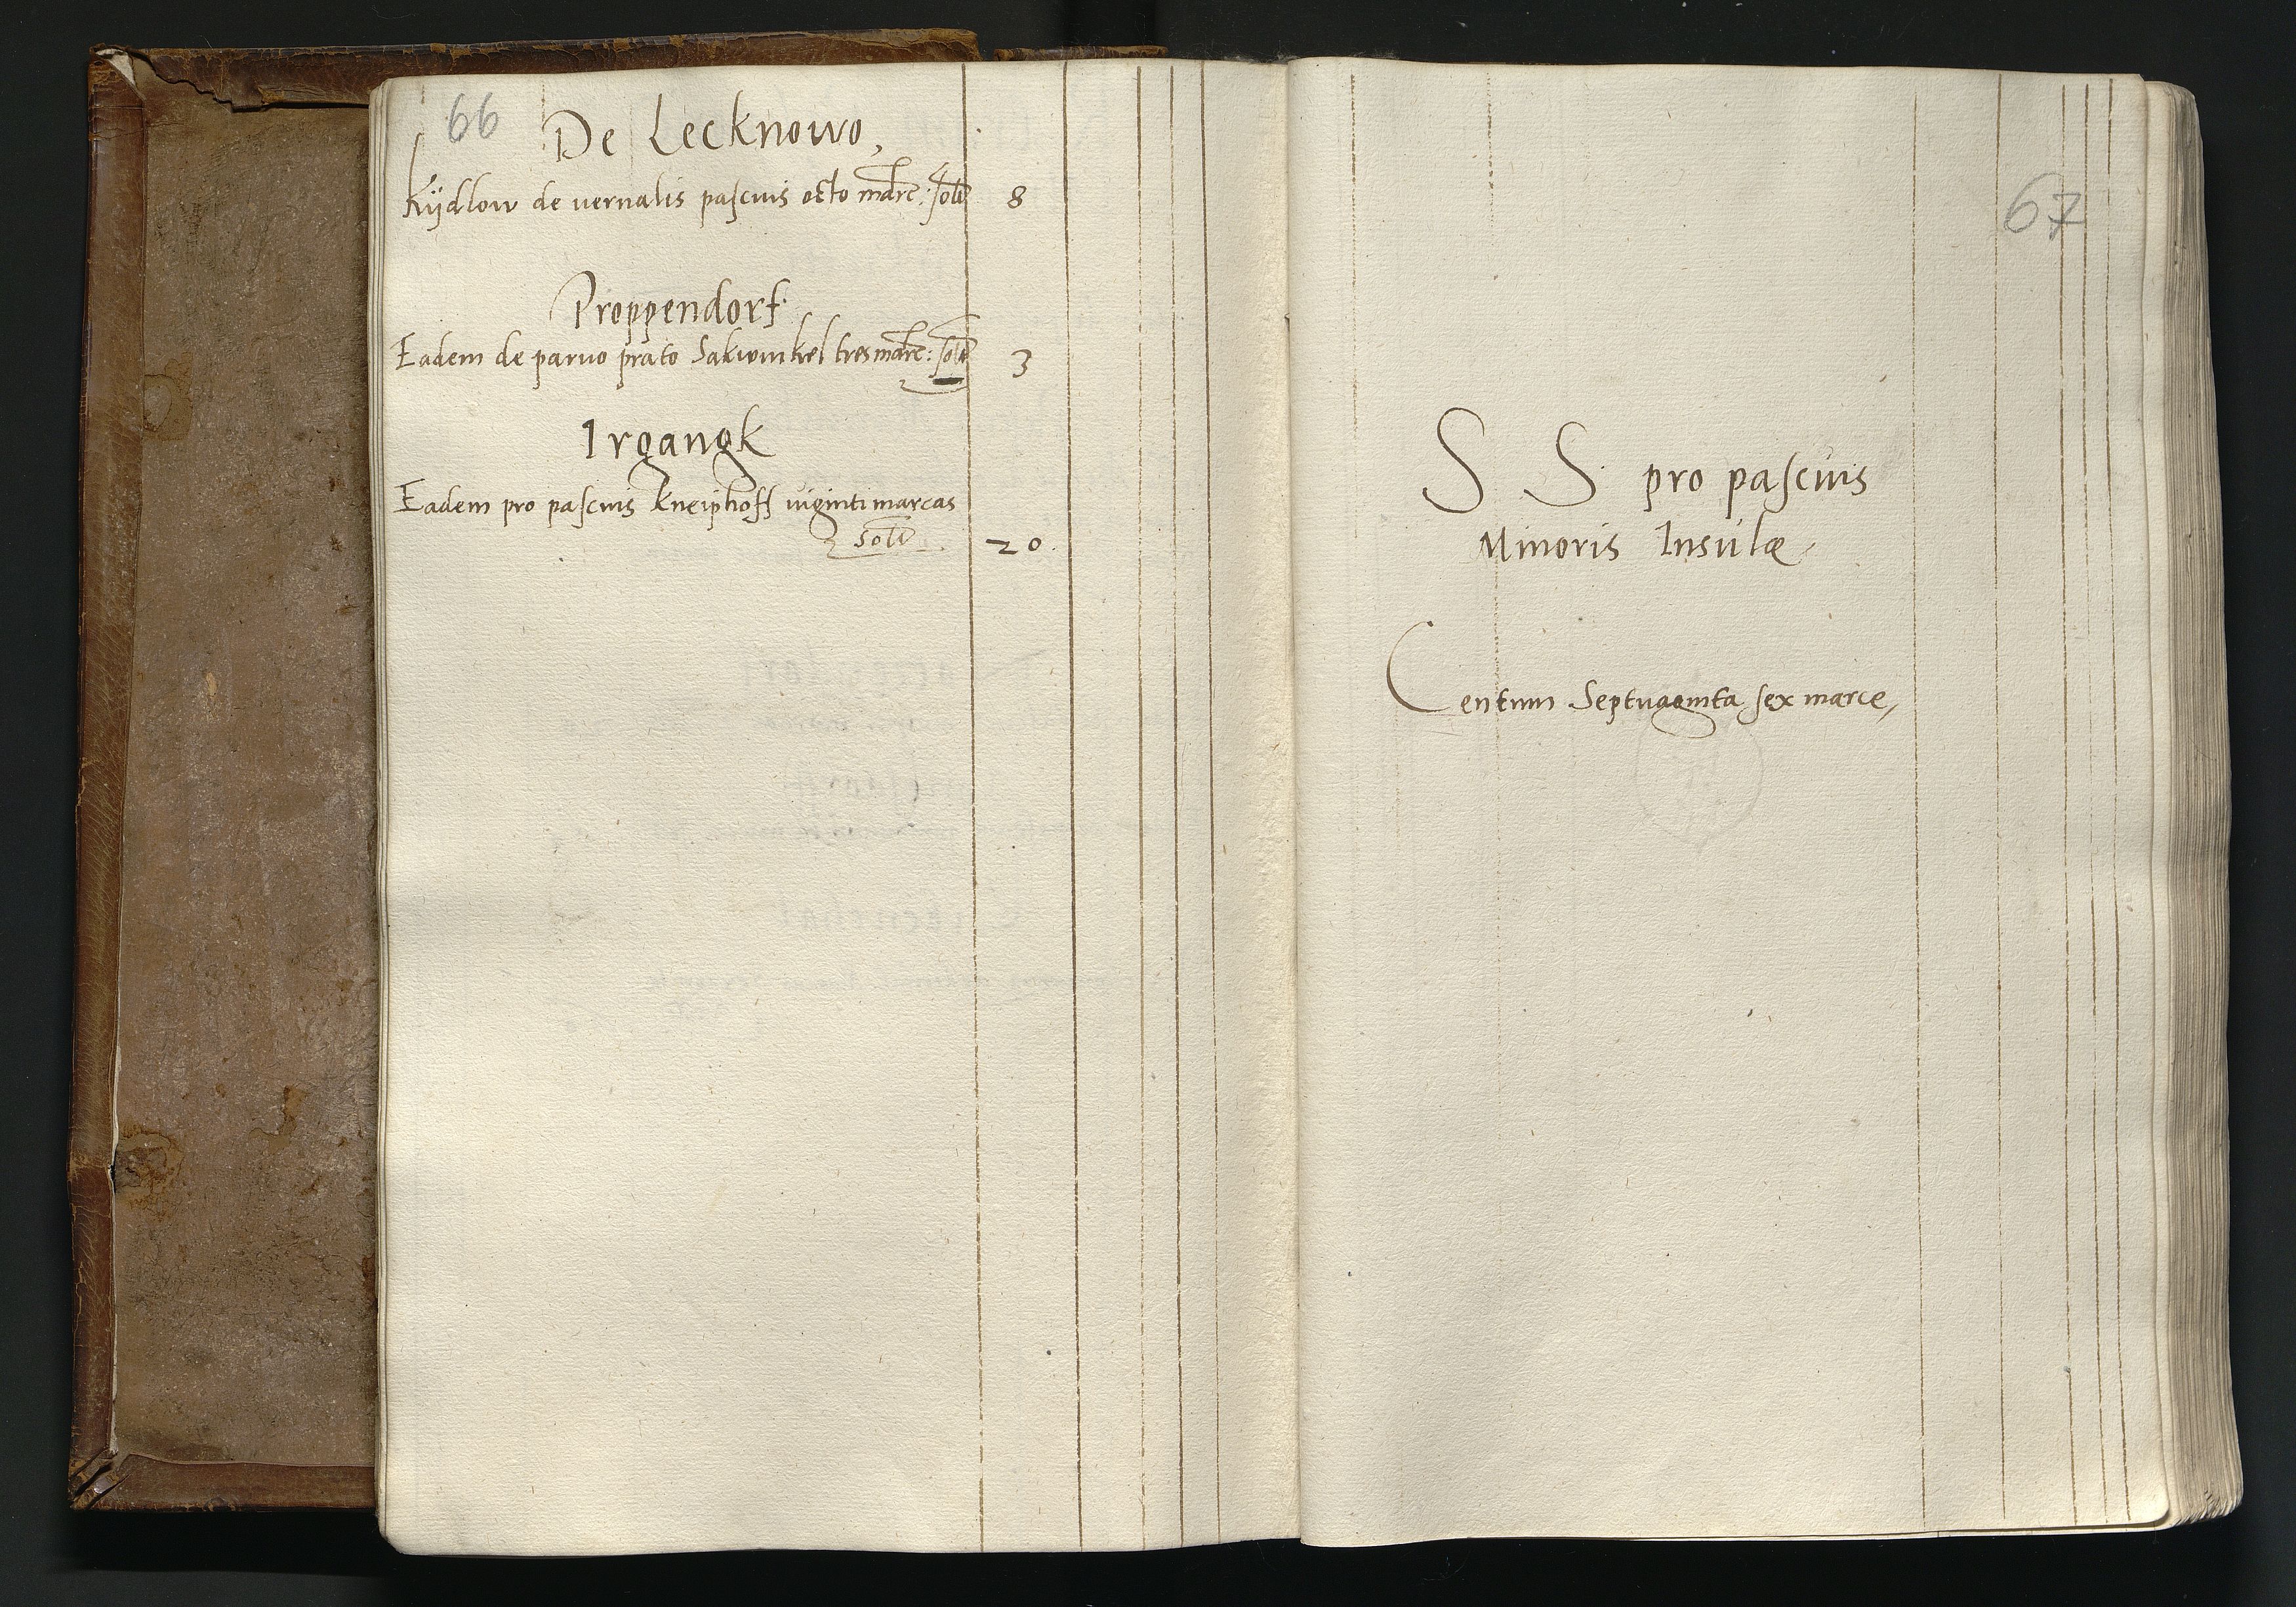 66
De Lecknowo,
Kÿdlow de vernalis pascuis octo marc: solv 8
Proppendorf
Eadem de paruo prato Sakwinkel tres marc: solv 3
Irgangk
Eadem pro pascuis Kneiphoff uiginti marcas
solv 20.
67
S S pro pascuis
Minoris Insulæ
Centum Septuaginta sex marce,